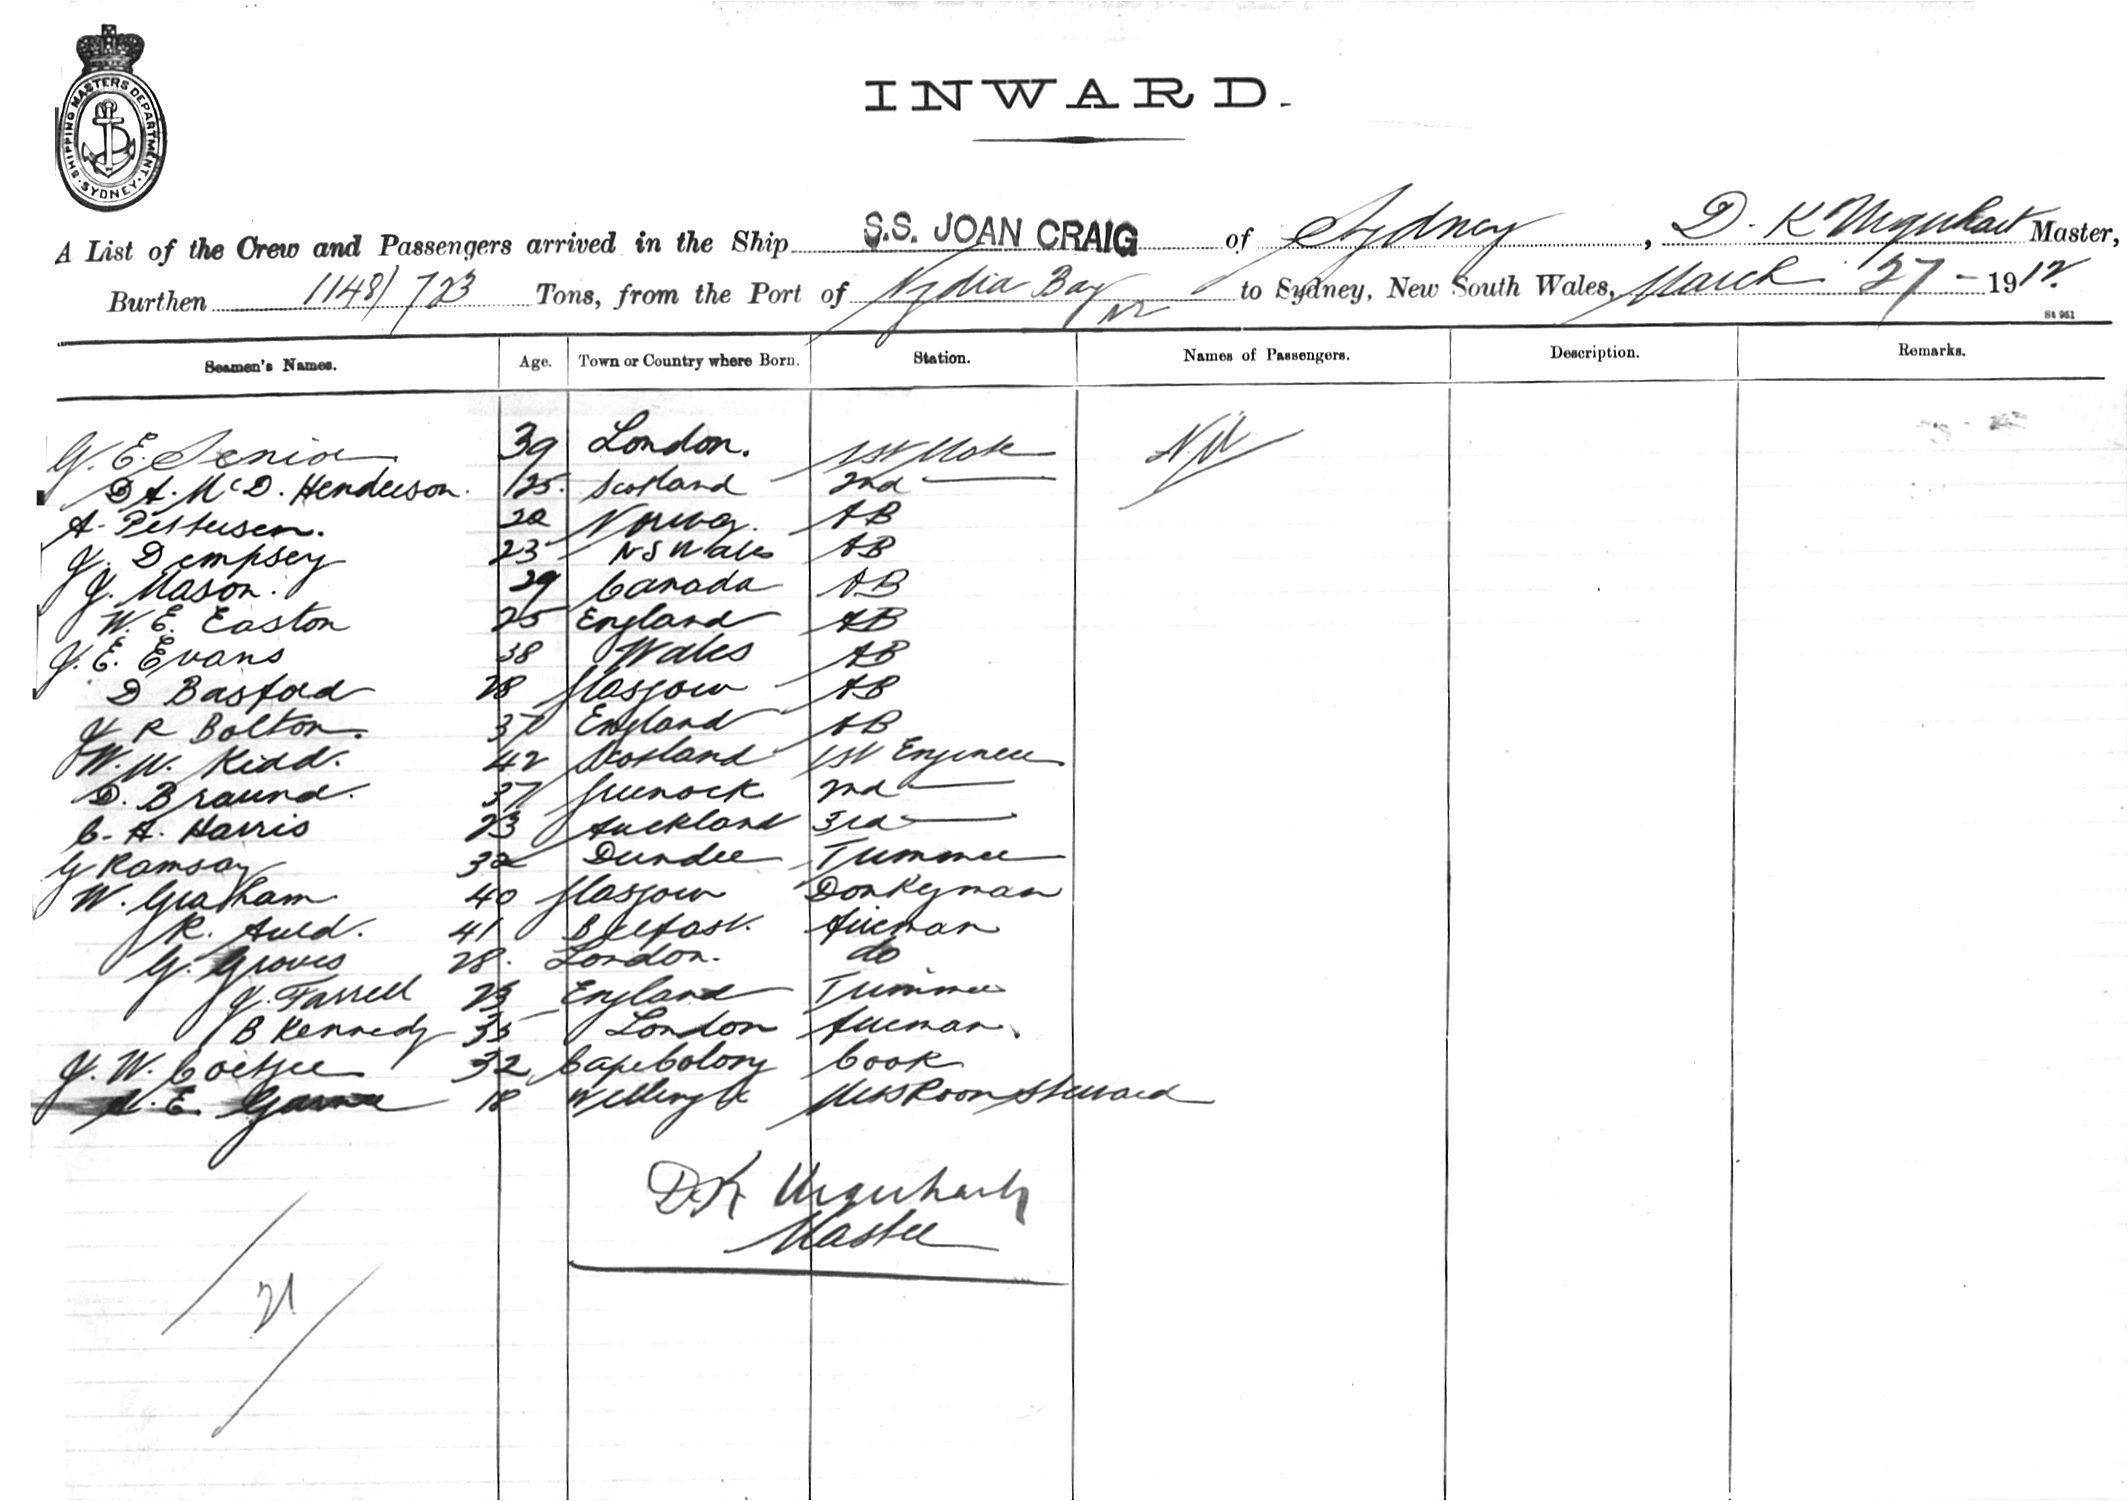 SHIPPING MASTERS DEPARTMENT. SYDNEY.
INWARD.
A List of the Crew and Passengers arrived in the Ship S.S. JOAN CRAIG of Sydney, D. K Urquhart Master,
Burthen 1148/723 Tons, from the Port of Nydia Bay NZ to Sydney, New South Wales, March 27 - 1912.
St 961
Seamen's Names. Age. Town or Country where Born. Station. Names of Passengers. Description. Remarks.
G. E. Senior 39 London. 1st Mate Nil
D A. McD. Henderson. 25. Scotland 2nd
A. Pettersen. Norway. AB
J. Dempsey 23 N S Wales AB
J. Mason. 29 Canada AB
W. E. Easton 25 England AB
J. E. Evans 38 Wales AB
D Basford 28 Glasgow AB
J R Bolton. 37 England AB
W. W. Kidd. 42 Scotland 1st Engineer
D. Braund. 37 Greenock 2nd
C. A. Harris 23 Auckland 3rd
G Ramsay 32 Dundee Trimmer
W. Graham 40 Glasgow Donkeyman
R. Auld. 41 Belfast. Fireman
G. Groves 28. London. do
J. Farrell 23 England Trimmer
B Kennedy 35 London Fireman.
J. W. Coetzee 32 Cape Colony Cook
E. 18 Wellington MessRoom Steward
D. K Urquhart
Master
21